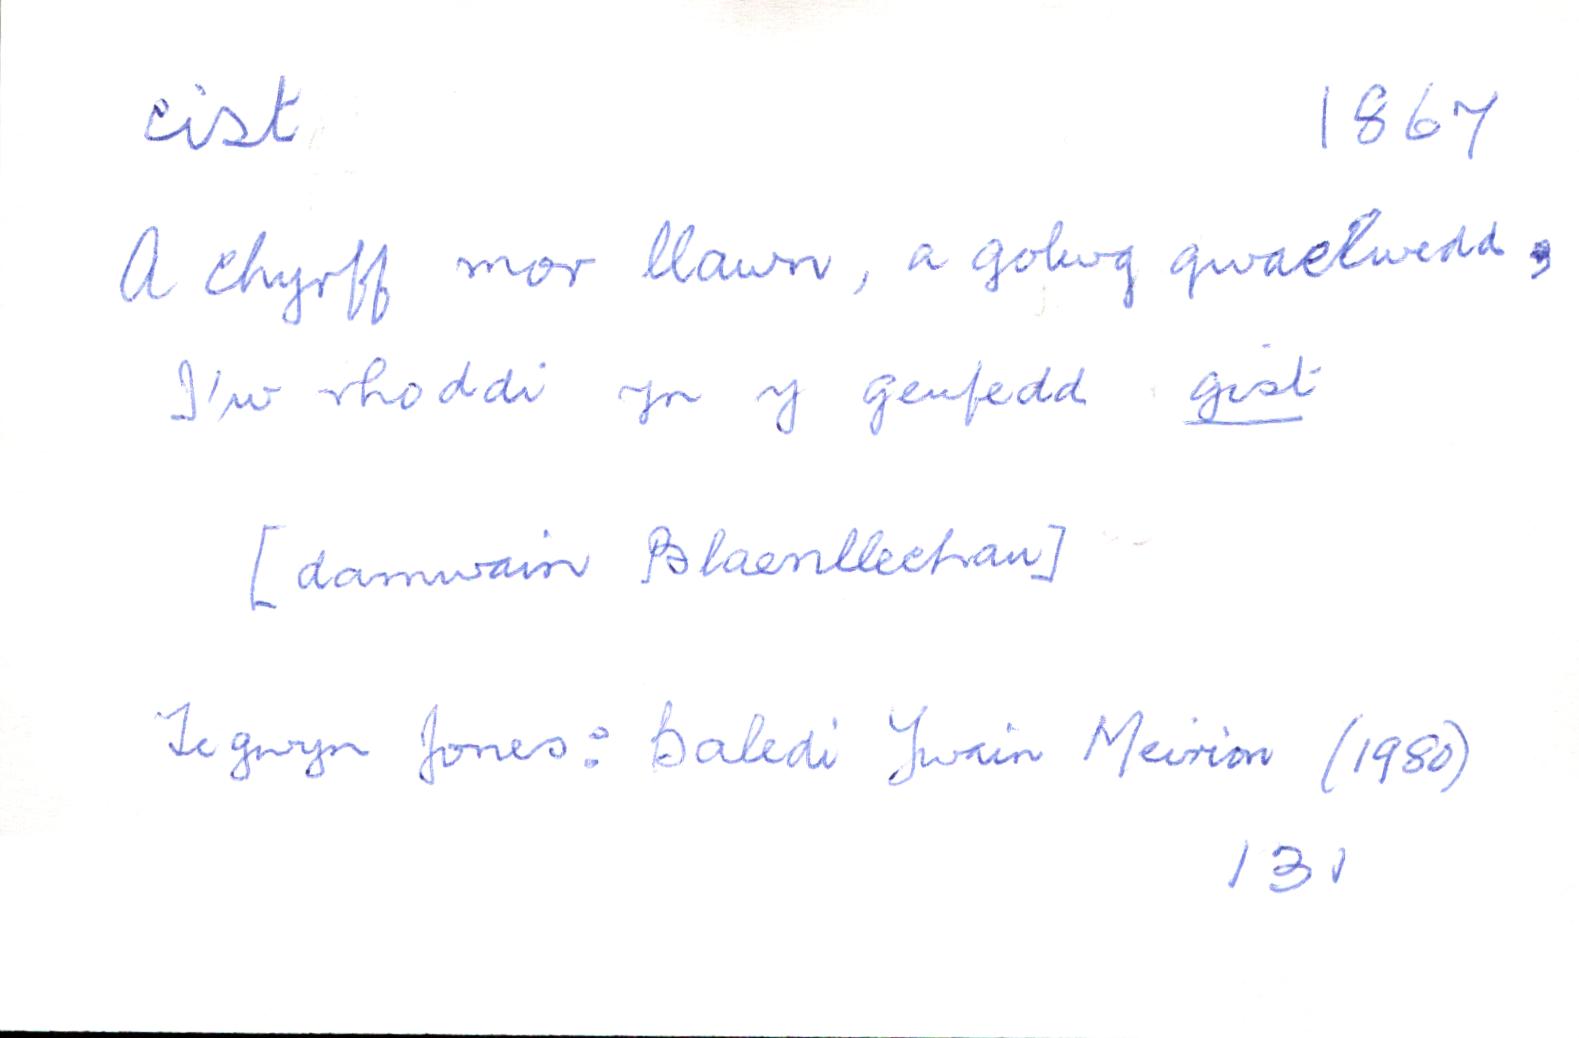 cist 1867
A chyrff mor llawn, a golwg gwaelwedd,
I'w rhoddi yn y geufedd gist
[damwain Blaenllechau]
Tegwyn Jones: Baledi Ywain Meirion (1980)
131